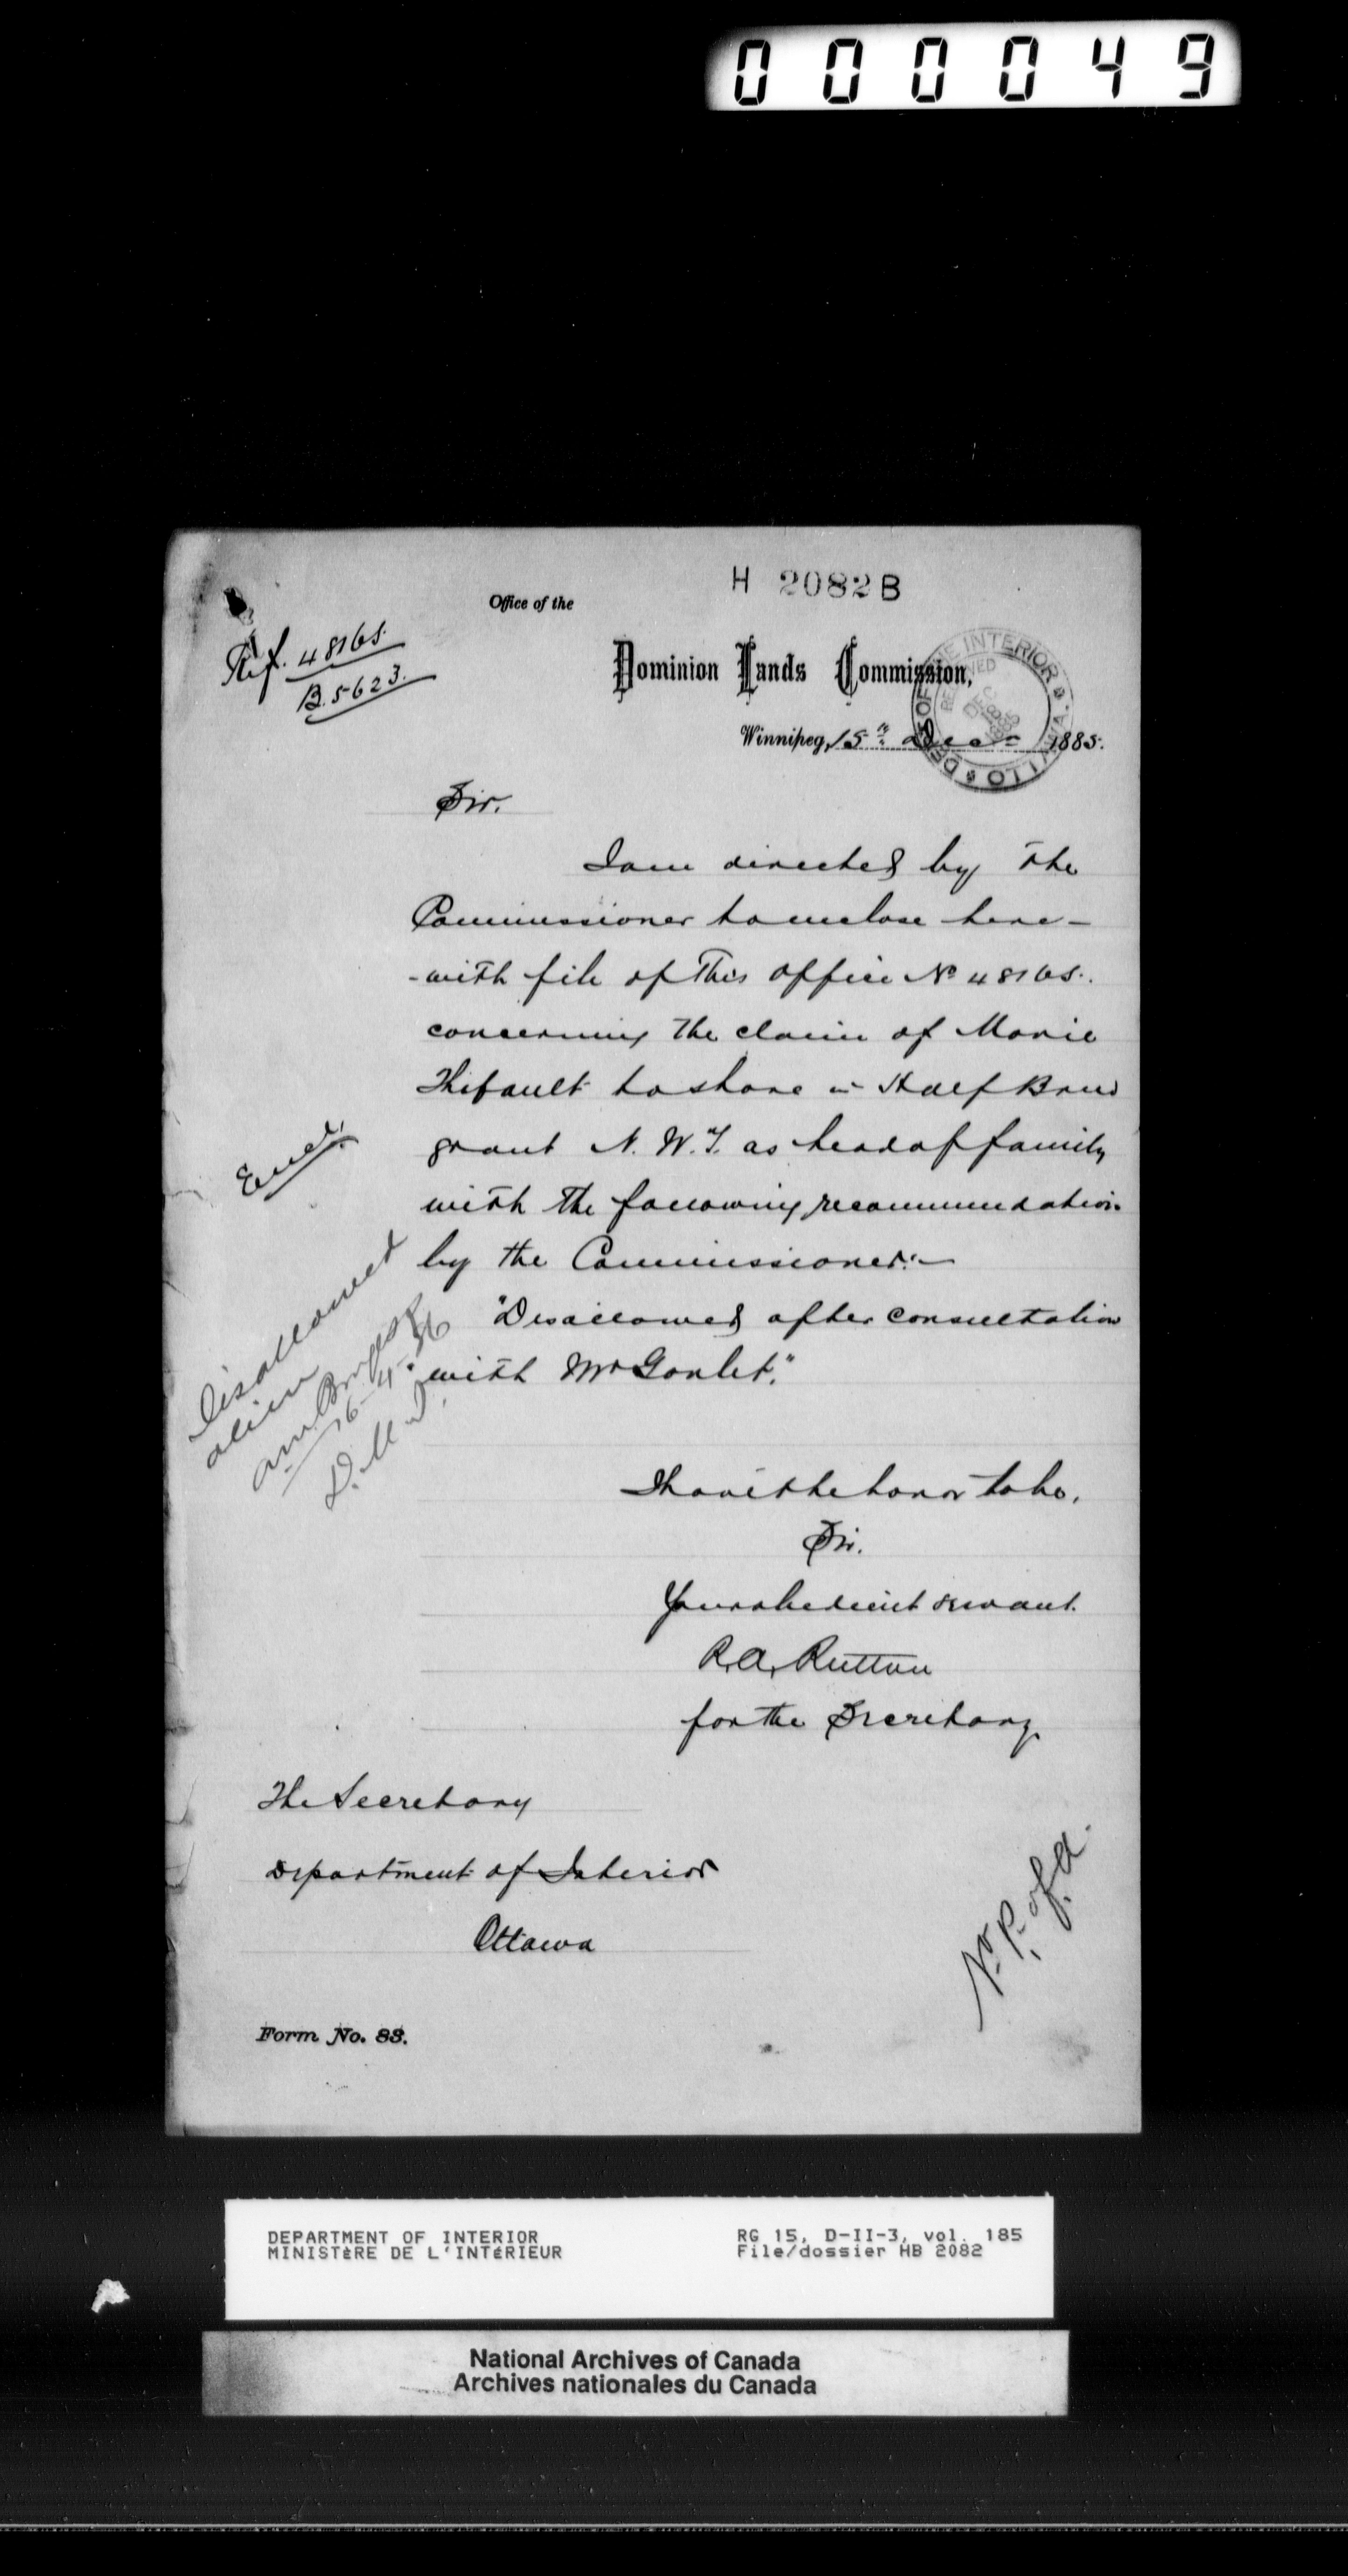 000049
H 2082 B
Office of the
Ref. 48165.
B. 5623.
Dominion Lands Commission,
DEPT OF THE INTERIOR OTTAWA
RECEIVED
DEC
Winnipeg, 15th Dec 1885.
Sir.
I am directed by the
Commissioner to enclose here-
-with file of this office No 48165.
concerning the claim of Marie
Thifault to share in Half Breed
Encl.
grant N.W.T. as head of family
with the following recommendation
by the Commissioner:-
"Disallowed after consultation
"with Mr Goulet."
Disallowed
A M Burgess
16-4-86
D.M.I.
I have the honor to be,
Sir.
Your obedient servant.
R. A. Ruttan
for the Secretary
The Secretary
Department of Interior
Ottawa
N.P. of A.
Form No. 83.
DEPARTMENT OF INTERIOR
MINISTÈRE DE L'INTÉRIEUR
RG 15, D-II-3, vol. 185
File/dossier HB 2082
National Archives of Canada
Archives nationales du Canada